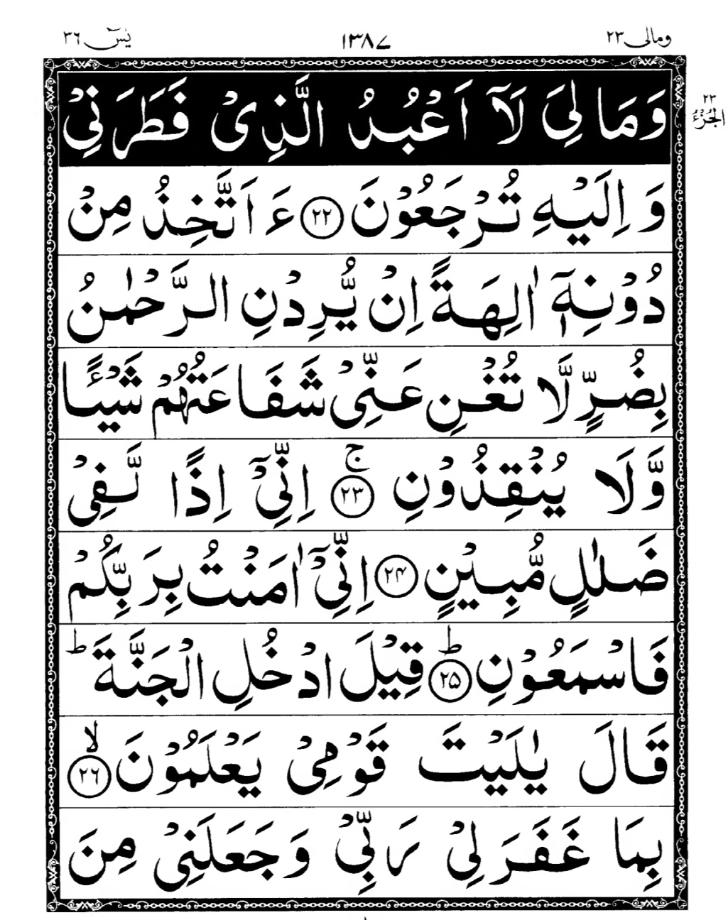 ومالی ۲۳ ۱۳۸۷ یٰسٓ ۳۶
۲۳
الجُزْءُ
وَمَا لِیَ لَاۤ اَعْبُدُ الَّذِیْ فَطَرَنِیْ
وَ اِلَیْهِ تُرْجَعُوْنَ ﴿۲۲﴾ ءَاَتَّخِذُ مِنْ
دُوْنِهٖۤ اٰلِهَةً اِنْ یُّرِدْنِ الرَّحْمٰنُ
بِضُرٍّ لَّا تُغْنِ عَنِّیْ شَفَاعَتُهُمْ شَیْـًٔا
وَّلَا یُنْقِذُوْنِ ﴿۲۳﴾ۚ اِنِّیْۤ اِذًا لَّفِیْ
ضَلٰلٍ مُّبِیْنٍ ﴿۲۴﴾ اِنِّیْۤ اٰمَنْتُ بِرَبِّكُمْ
فَاسْمَعُوْنِ ﴿۲۵﴾ؕ قِیْلَ ادْخُلِ الْجَنَّةَ ؕ
قَالَ یٰلَیْتَ قَوْمِیْ یَعْلَمُوْنَ ﴿۲۶﴾ۙ
بِمَا غَفَرَ لِیْ رَبِّیْ وَجَعَلَنِیْ مِنَ